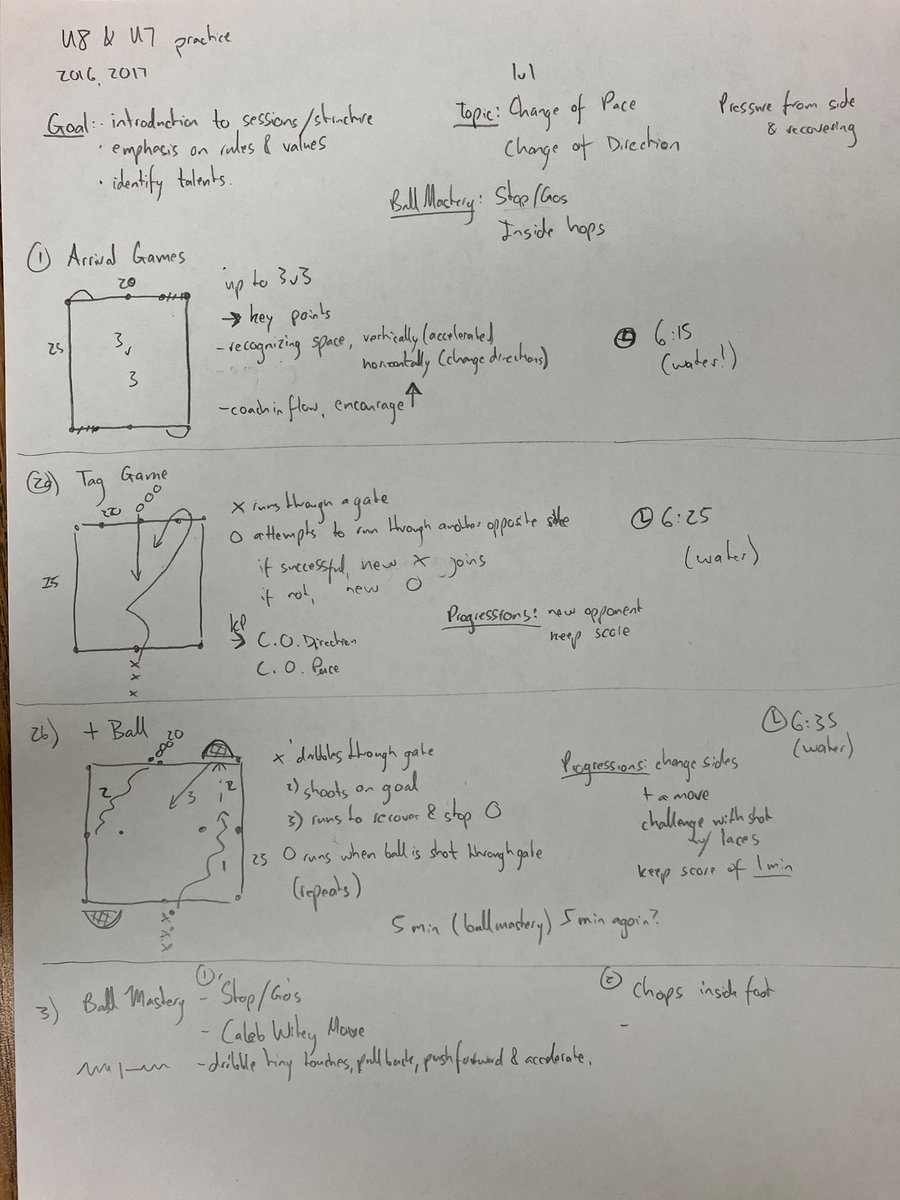 U8 & U7 practice
2016, 2017
Goal: · introduction to sessions/structure
· emphasis on rules & values
· identify talents.
1v1
Topic: Change of Pace
Change of Direction
Pressure from side
& recovering
Ball Mastery: Stop/Gos
Inside hops
1 Arrival Games
20
25
3
v
3
up to 3v3
→ key points
- recognizing space, vertically (accelerated)
horizontally (change directions)
- coach in flow, encourage ↑
6:15
(water!)
2a) Tag Game
20
25
X runs through a gate
O attempts to run through another opposite side
if successful, new X joins
if not, new O
KP
→ C.O. Direction
C.O. Pace
Progressions: new opponent
keep score
6:25
(water)
x
x
x
2b) + Ball
20
2
3
2
1
25
x x x
x dribbles through gate
2) shoots on goal
3) runs to recover & stop O
O runs when ball is shot through gate
(repeats)
Progressions: change sides
+ a move
challenge with shot
w/ laces
keep score of 1 min
6:35
(water)
5 min (ball mastery) 5 min again?
3) Ball Mastery
1 - Stop/Go's
- Caleb Wiley Move
- dribble tiny touches, pull back, push forward & accelerate.
2 Chops inside foot
-